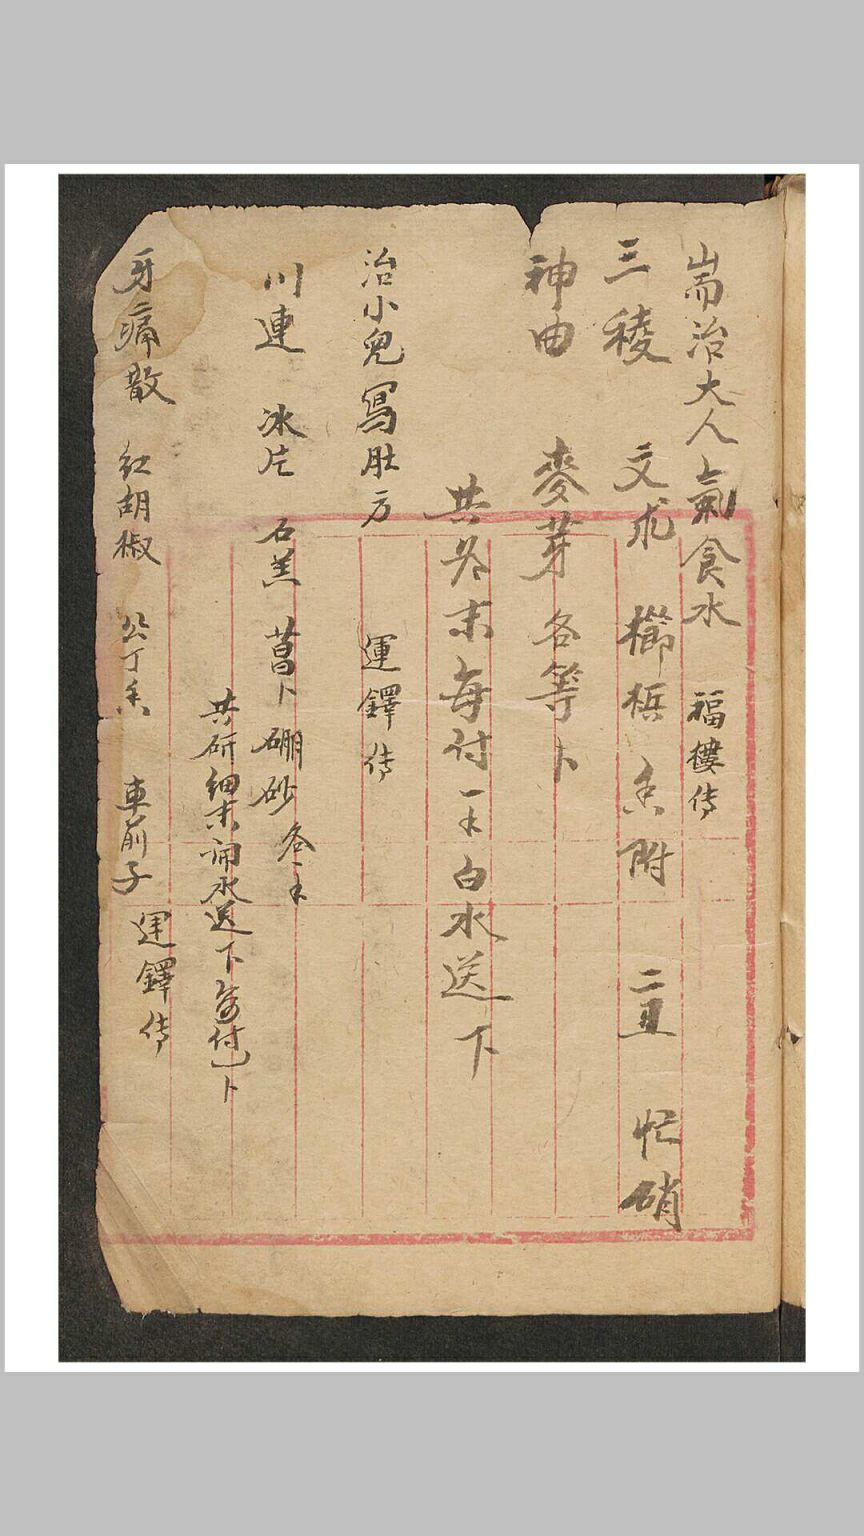 耑治大人氣食水 福樓传
三稜 文术 梹榔 香附 二丑 忙硝
神曲 麥芽 各等卜
共为末每付一不白水送下
治小兒冩肚方 運鐸传
川連 冰片 石羔 菖卜 硼砂 各一不
共研細末 水送下每付一卜
牙痛散 红胡椒 公丁香 車前子 運鐸传